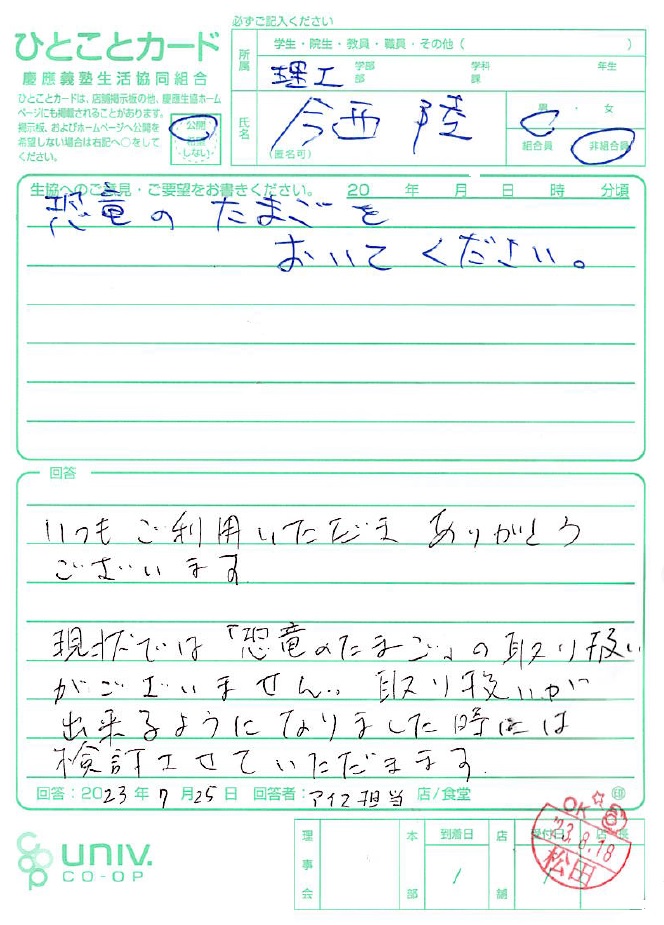 必ずご記入ください
ひとことカード
慶應義塾生活協同組合
ひとことカードは、店舗掲示板の他、慶應生協ホーム
ページにも掲載されることがあります。
掲示板、およびホームページへ公開を
希望しない場合は右記へ○をして
ください。
公開
希望
しない
所属
学生・院生・教員・職員・その他（　　　）
理工 学部 学科 年生
部 課
氏名
今西 陸
(匿名可)
男・女
組合員
非組合員
生協へのご意見・ご要望をお書きください。 20 年 月 日 時 分頃
恐竜のたまごを
おいてください。
回答
いつもご利用いただき ありがとう
ございます
現状では「恐竜のたまご」の取り扱い
がございません。取り扱いが
出来るようになりました時には
検討させていただきます
回答：2023年7月25日 回答者：アイス担当 店/食堂 印
univ.
CO-OP
理事会
本部
到着日
/
店舗
受付日
店長
OK☆
'23.8.18
松田